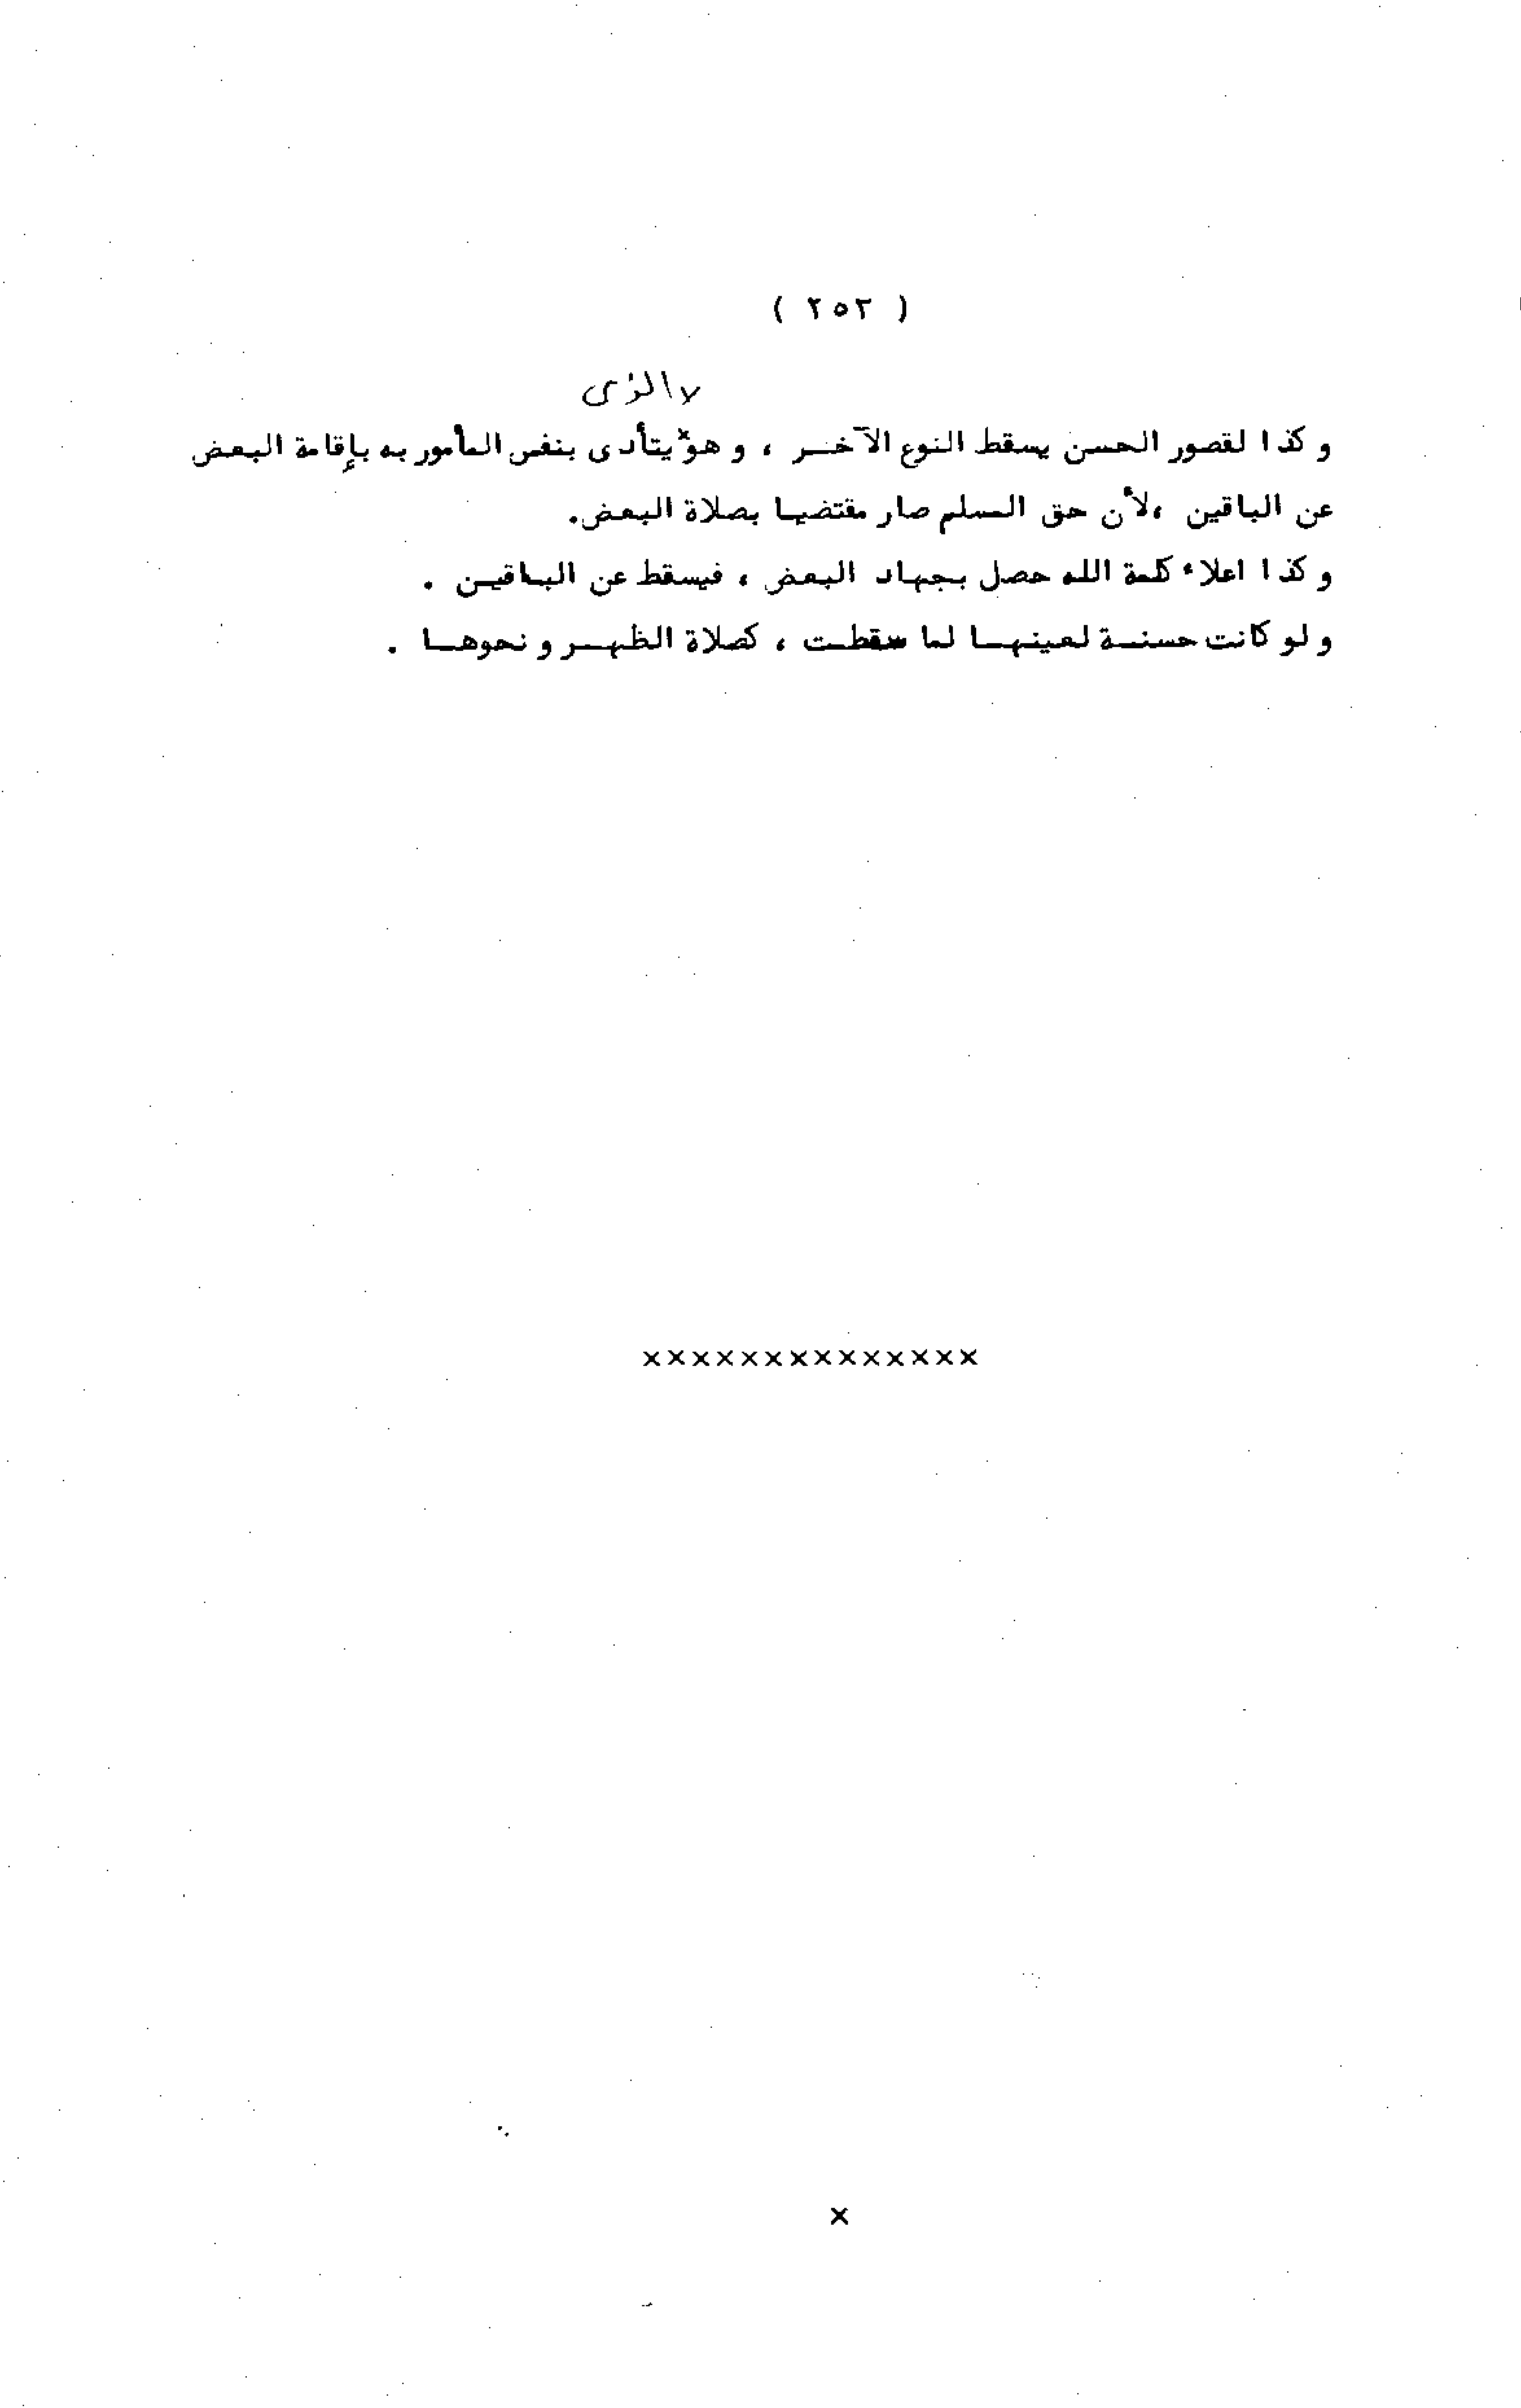 ( ٢٥٢ )
الذى
و كذا لقصور الحسن يسقط النوع الآخــر ، و هو× يتأدى بنفس المأمور به بإقامة البعض
عن الباقين ،لأن حق المسلم صار مقتضيا بصلاة البعض.
و كذا اعلاء كلمة الله حصل بجهاد البعض ، فيسقط عن البـاقيـن .
و لو كانت حسنــة لعينهــا لما سقطــت ، كصلاة الظهــر و نحوهــا .
××××××××××××××
×